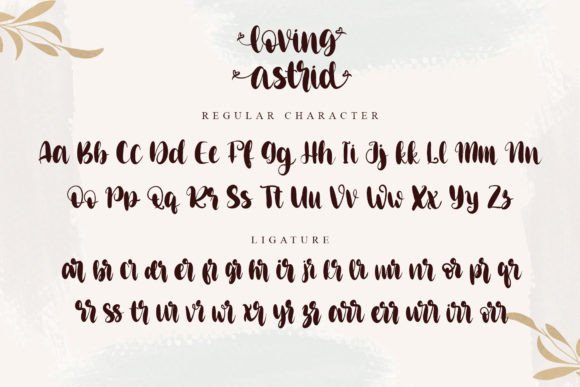 loving
astrid
REGULAR CHARACTER
Aa Bb Cc Dd Ee Ff Gg Hh Ii Jj kk Ll Mm Nn
Oo Pp Qq Rr Ss Tt Uu Vv Ww Xx Yy Zz
LIGATURE
ar br cr dr er fr gr hr ir jr kr lr mr nr or pr qr
rr ss tr ur vr wr xr yr zr arr err urr irr orr